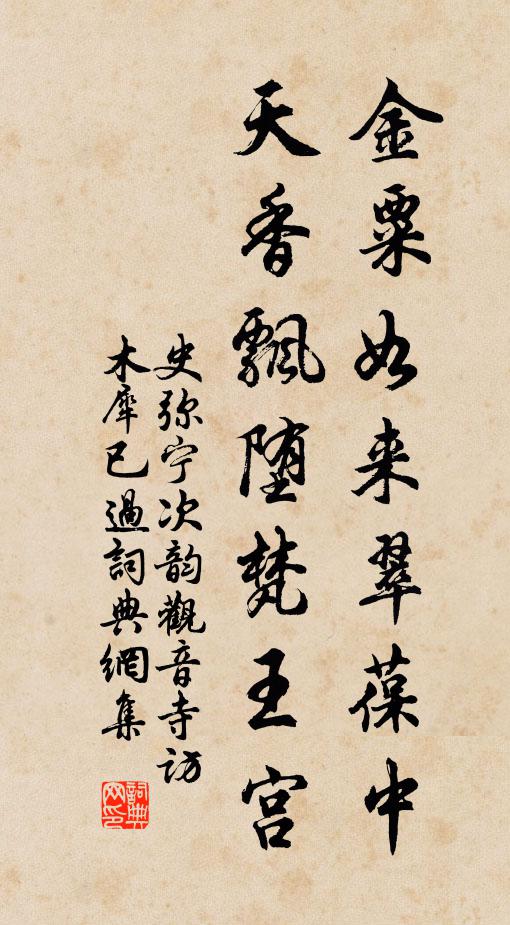 金粟如来翠葆中
天香飄堕梵王宫
史弥宁次韵觀音寺访
木犀已過詞典網集
詞典网印